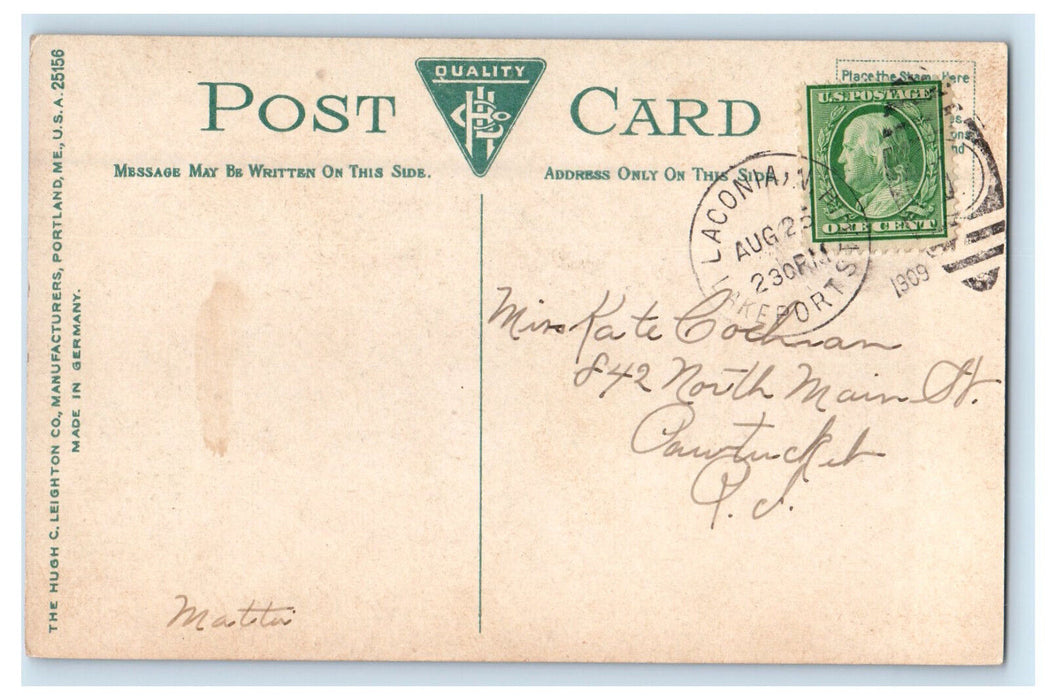 THE HUGH C. LEIGHTON CO., MANUFACTURERS, PORTLAND, ME., U.S.A. 25156
MADE IN GERMANY.
POST CARD
QUALITY
MESSAGE MAY BE WRITTEN ON THIS SIDE.
ADDRESS ONLY ON THIS SIDE
Place the Stamp Here
U.S. POSTAGE
ONE CENT
LACONIA, N.H.
AUG 25
230PM
LAKEPORT STA
1909
Miss Kate Cochran
842 North Main St.
Pawtucket
R.I.
Mattie